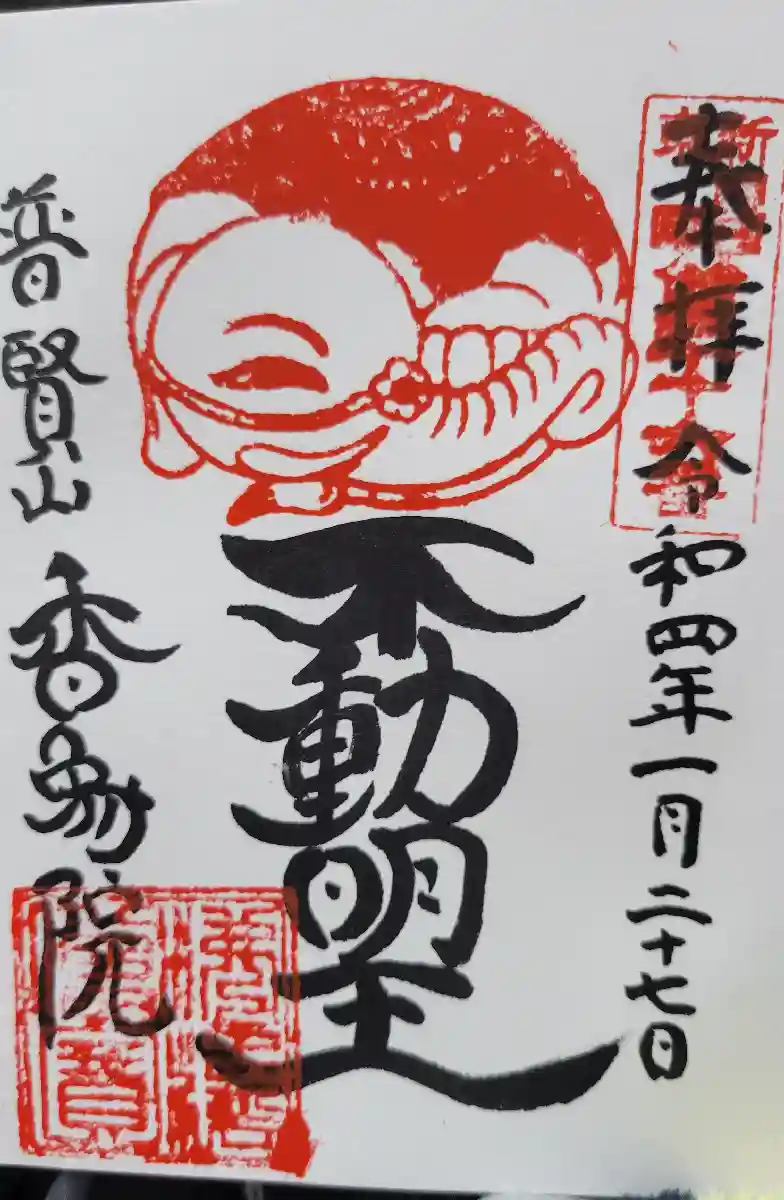 奉拝 令和四年一月二十七日
不動明王
普賢山 香象院